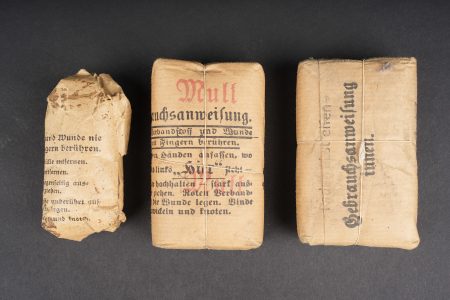 und Wunde nie
gern berühren.
entfernen.
entfernen.
seitig aus-
unberührt auf
legen.
und knoten.
Mull
uchsanweisung.
erbandstoff und Wunde
n Fingern berühren.
n Händen anfassen, wo
links „Hier"
hochhalten — stark aus-
ehen. Roten Verband-
ie Wunde legen. Binde
wickeln und knoten.
Gebrauchsanweisung
innen.